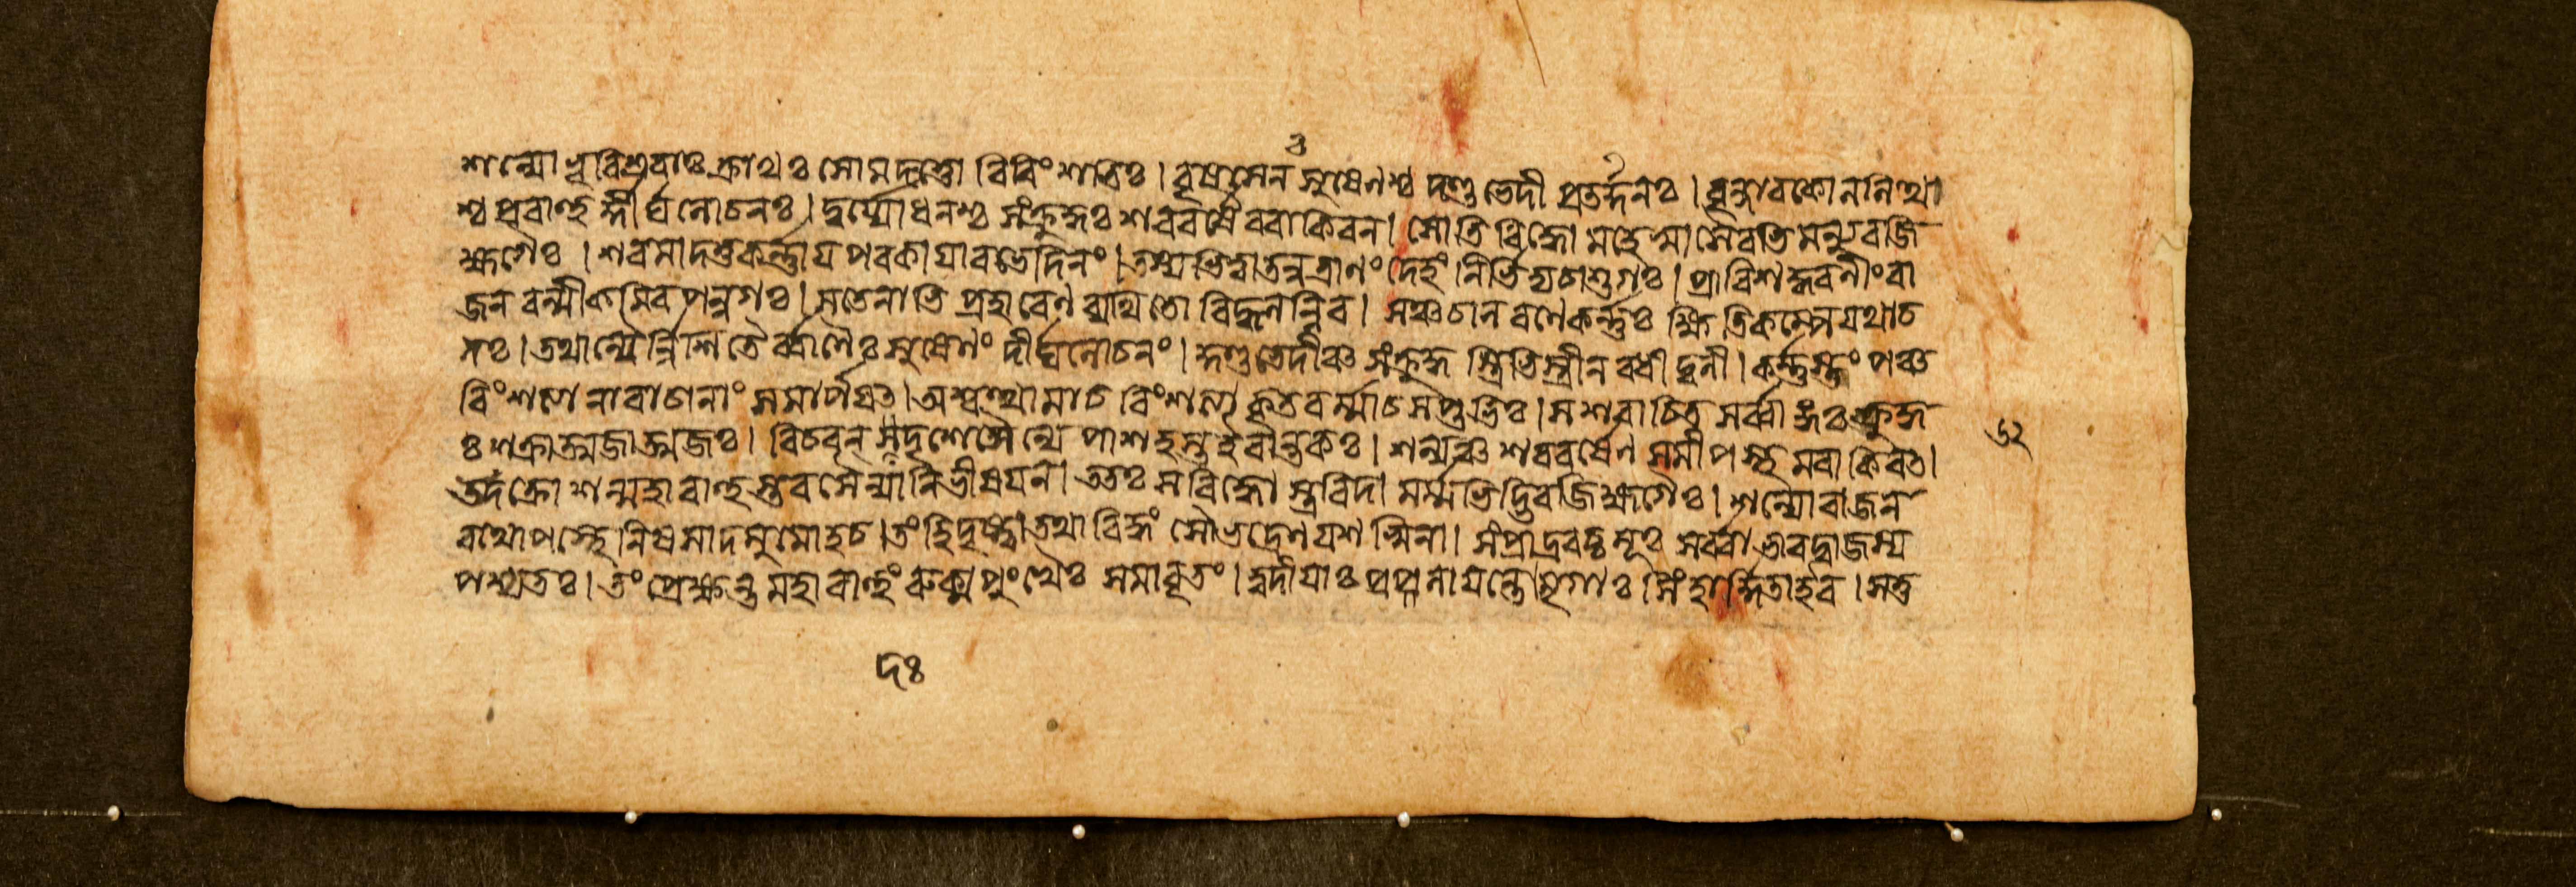 শল্যো ভূরিশ্রবাঃ ক্রাথঃ সোমদত্তো বিবিংশতিঃ। বৃষসেন সুষেণশ্চ দণ্ডভেদী প্রতর্দ্দনঃ। বৃন্দারকোললিত্থা
শ্চ প্রবাহুর্দ্দীর্ঘলোচনঃ। দুর্য্যোধনশ্চ সংক্রুদ্ধঃ শরবর্ষৈরবাকিরন। সোতিবিদ্ধো মহেষ্বাসৈরভিমন্যুরজি
হ্মগৈঃ। শরমাদত্তকর্ণ্ণায় পরকায়াবভেদিনং। তস্যভিত্বাতনুত্রাণং দেহং নির্ভিদ্যচাশুগঃ। প্রাবিশদ্ধরণীং রা
জন বল্মীকমিবপন্নগঃ। সতেনাতি প্রহারেণ ব্যথিতো বিহ্বলন্নিব। সঞ্চচাল রণেকর্ণ্ণঃ ক্ষিতিকম্পেযথাচ
লঃ। তথান্যৈর্ন্নিশিতৈর্ব্বাণৈঃ সুষেণং দীর্ঘলোচনং। কুণ্ডভেদীঞ্চ সংক্রুদ্ধ স্ত্রিভিস্ত্রীনবধীদ্বলী। কর্ণ্ণস্তং পঞ্চ
বিংশত্যা নারাচানাং সমার্পয়ত। অশ্বত্থামাচ বিংশত্যা কৃতবর্ম্মাচ সপ্তভিঃ। স শরাচিত সর্ব্বাঙ্গঃ ক্রুদ্ধ
ঃ শক্রাত্মজাত্মজঃ। বিচরন্ সদৃশেসৈন্যে পাশহস্তইবান্তকঃ। শল্যঞ্চ শরবর্ষেণ সমীপস্থ মবাকিরৎ।
উদক্রোশন্মহাবাহুস্তবসৈন্যানিভীষয়ন। ততঃ সবিদ্ধো স্ত্রবিদা মর্ম্মভিদ্ভিরজিহ্মগৈঃ। শল্যোরাজন
রথোপস্থে নিষসাদমুমোহচ। তংহিদৃষ্ট্বা তথাবিদ্ধং সৌভদ্রেণযশস্বিনা। সংপ্রাদ্রবচ্চমূঃ সর্ব্বা ভারদ্বাজস্য
পশ্যতঃ। তং প্রেক্ষ্যতু মহাবাহুং রুক্মপুংখৈঃ সমাবৃতং। ত্বদীয়াঃ প্রপলায়ন্তে মৃগাঃ সিংহার্দ্দিতাইব। সতু
৬২
দঃ